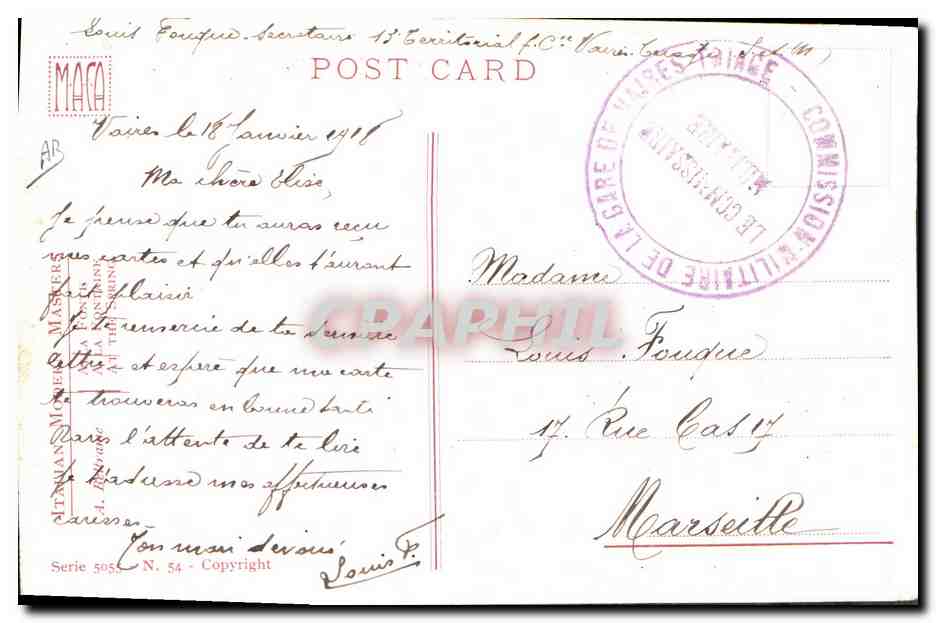 Louis Fouque Secretaire 13e Territorial f. Cie Vaires Torcy (S. et M)
POST CARD
M.A.C.A
AB
Vaires le 18 Janvier 1918
Ma chère Elise,
Je pense que tu auras reçu
mes cartes et qu'elles t'auront
fait plaisir
Je te remercie de ta dernière
lettre et espère que ma carte
te trouveras en bonne santé
Dans l'attente de te lire
Je t'adresse mes affectueuses
caresses
Ton mari dévoué
Louis F.
ITALIAN MODERN MASKERS
A. Bertrame
ALLA FONTE
A LA FONTAINE
AT THE SPRING
Serie 5055 - N. 54 - Copyright
COMMISSION MILITAIRE DE LA GARE DE VAIRES-TRIAGE
LE COMMISSAIRE
MILITAIRE
Madame
Louis Fouque
17. Rue Cas 17
Marseille
CPAPHIL